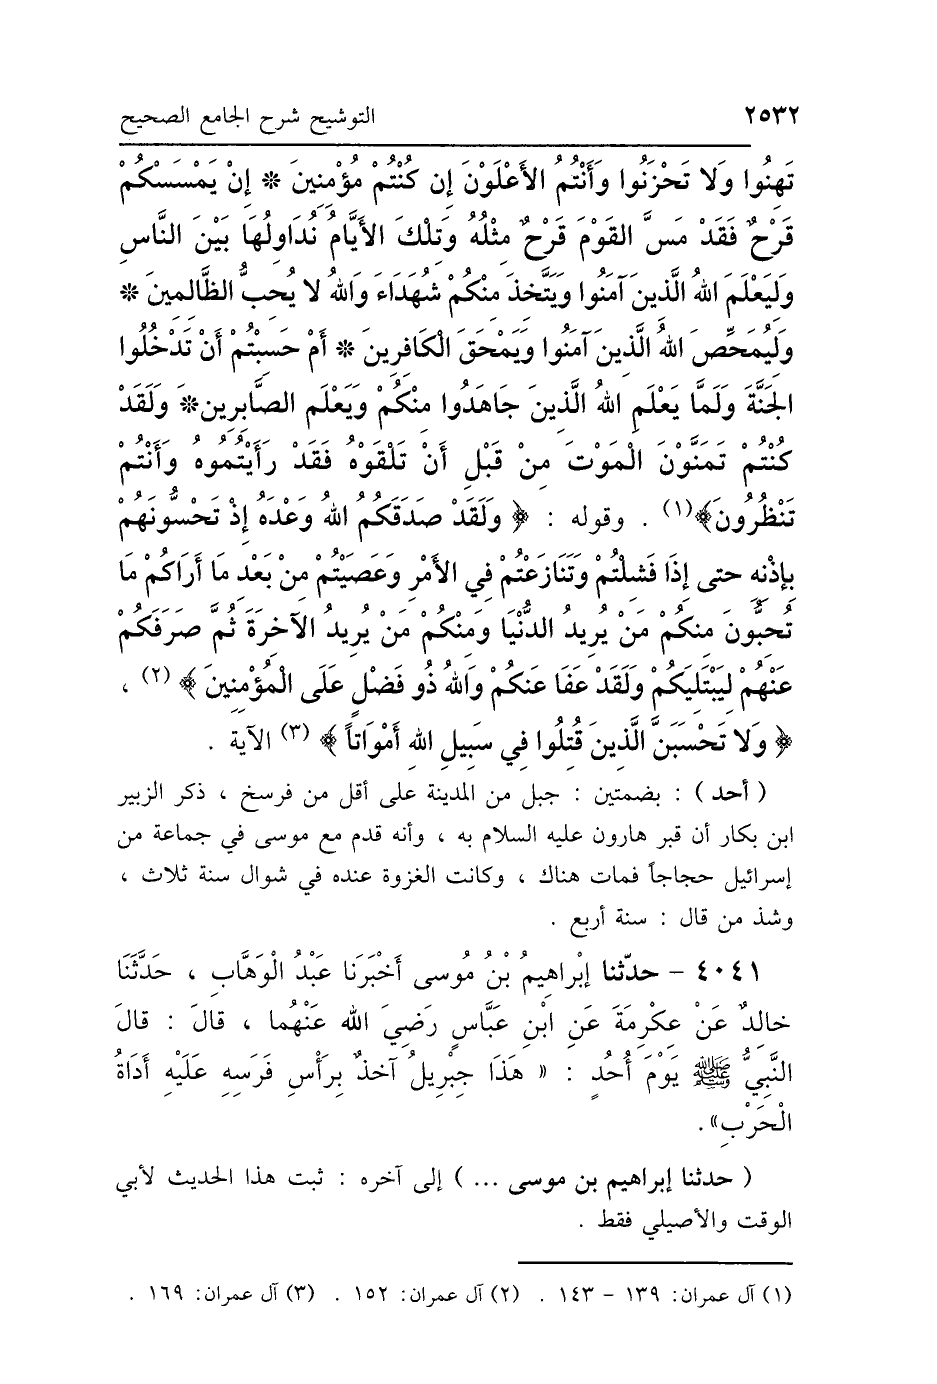 ٢٥٣٢ التوشيح شرح الجامع الصحيح
تَهِنُوا وَلا تَحْزَنُوا وَأَنْتُمُ الأَعْلَوْنَ إِن كُنْتُمْ مُؤْمِنِينَ * إِنْ يَمْسَسْكُمْ
قَرْحٌ فَقَدْ مَسَّ القَوْمَ قَرْحٌ مِثْلُهُ وَتِلْكَ الأَيَّامُ نُدَاوِلُهَا بَيْنَ النَّاسِ
وَلِيَعْلَمَ اللهُ الَّذِينَ آمَنُوا وَيَتَّخِذَ مِنْكُمْ شُهَدَاءَ وَاللهُ لا يُحِبُّ الظَّالِمِينَ *
وَلِيُمَحِّصَ اللهُ الَّذِينَ آمَنُوا وَيَمْحَقَ الْكَافِرِينَ * أَمْ حَسِبْتُمْ أَنْ تَدْخُلُوا
الجَنَّةَ وَلَمَّا يَعْلَمِ اللهُ الَّذِينَ جَاهَدُوا مِنْكُمْ وَيَعْلَمَ الصَّابِرِينَ* وَلَقَدْ
كُنْتُمْ تَمَنَّوْنَ الْمَوْتَ مِنْ قَبْلِ أَنْ تَلْقَوْهُ فَقَدْ رَأَيْتُمُوهُ وَأَنْتُمْ
تَنْظُرُونَ﴾(١) . وقوله : ﴿ وَلَقَدْ صَدَقَكُمُ اللهُ وَعْدَهُ إِذْ تَحُسُّونَهُمْ
بِإِذْنِهِ حتى إِذَا فَشِلْتُمْ وَتَنَازَعْتُمْ فِي الأَمْرِ وَعَصَيْتُمْ مِنْ بَعْدِ مَا أَرَاكُمْ مَا
تُحِبُّونَ مِنكُمْ مَنْ يُرِيدُ الدُّنْيَا وَمِنْكُمْ مَنْ يُرِيدُ الآخِرَةَ ثُمَّ صَرَفَكُمْ
عَنْهُمْ لِيَبْتَلِيَكُمْ وَلَقَدْ عَفَا عَنكُمْ وَاللهُ ذُو فَضْلٍ عَلَى الْمُؤْمِنِينَ ﴾ (٢) ،
﴿ وَلا تَحْسَبَنَّ الَّذِينَ قُتِلُوا فِي سَبِيلِ اللهِ أَمْوَاتاً ﴾ (٣) الآية .
( أحد ) : بضمتين : جبل من المدينة على أقل من فرسخ ، ذكر الزبير
ابن بكار أن قبر هارون عليه السلام به ، وأنه قدم مع موسى في جماعة من
إسرائيل حجاجاً فمات هناك ، وكانت الغزوة عنده في شوال سنة ثلاث ،
وشذ من قال : سنة أربع .
٤٠٤١ – حدّثنا إِبْراهِيمُ بْنُ مُوسى أَخْبَرَنَا عَبْدُ الْوَهَّابِ ، حَدَّثَنَا
خالِدٌ عَنْ عِكْرِمَةَ عَنِ ابْنِ عَبَّاسٍ رَضِيَ الله عَنْهُما ، قالَ : قالَ
النَّبِيُّ ﷺ يَوْمَ أُحُدٍ : « هَذَا جِبْرِيلُ آخِذٌ بِرَأْسِ فَرَسِهِ عَلَيْهِ أَدَاةُ
الْحَرْبِ».
( حدثنا إبراهيم بن موسى ... ) إلى آخره : ثبت هذا الحديث لأبي
الوقت والأصيلي فقط .
(١) آل عمران: ١٣٩ – ١٤٣ . (٢) آل عمران: ١٥٢ . (٣) آل عمران: ١٦٩ .